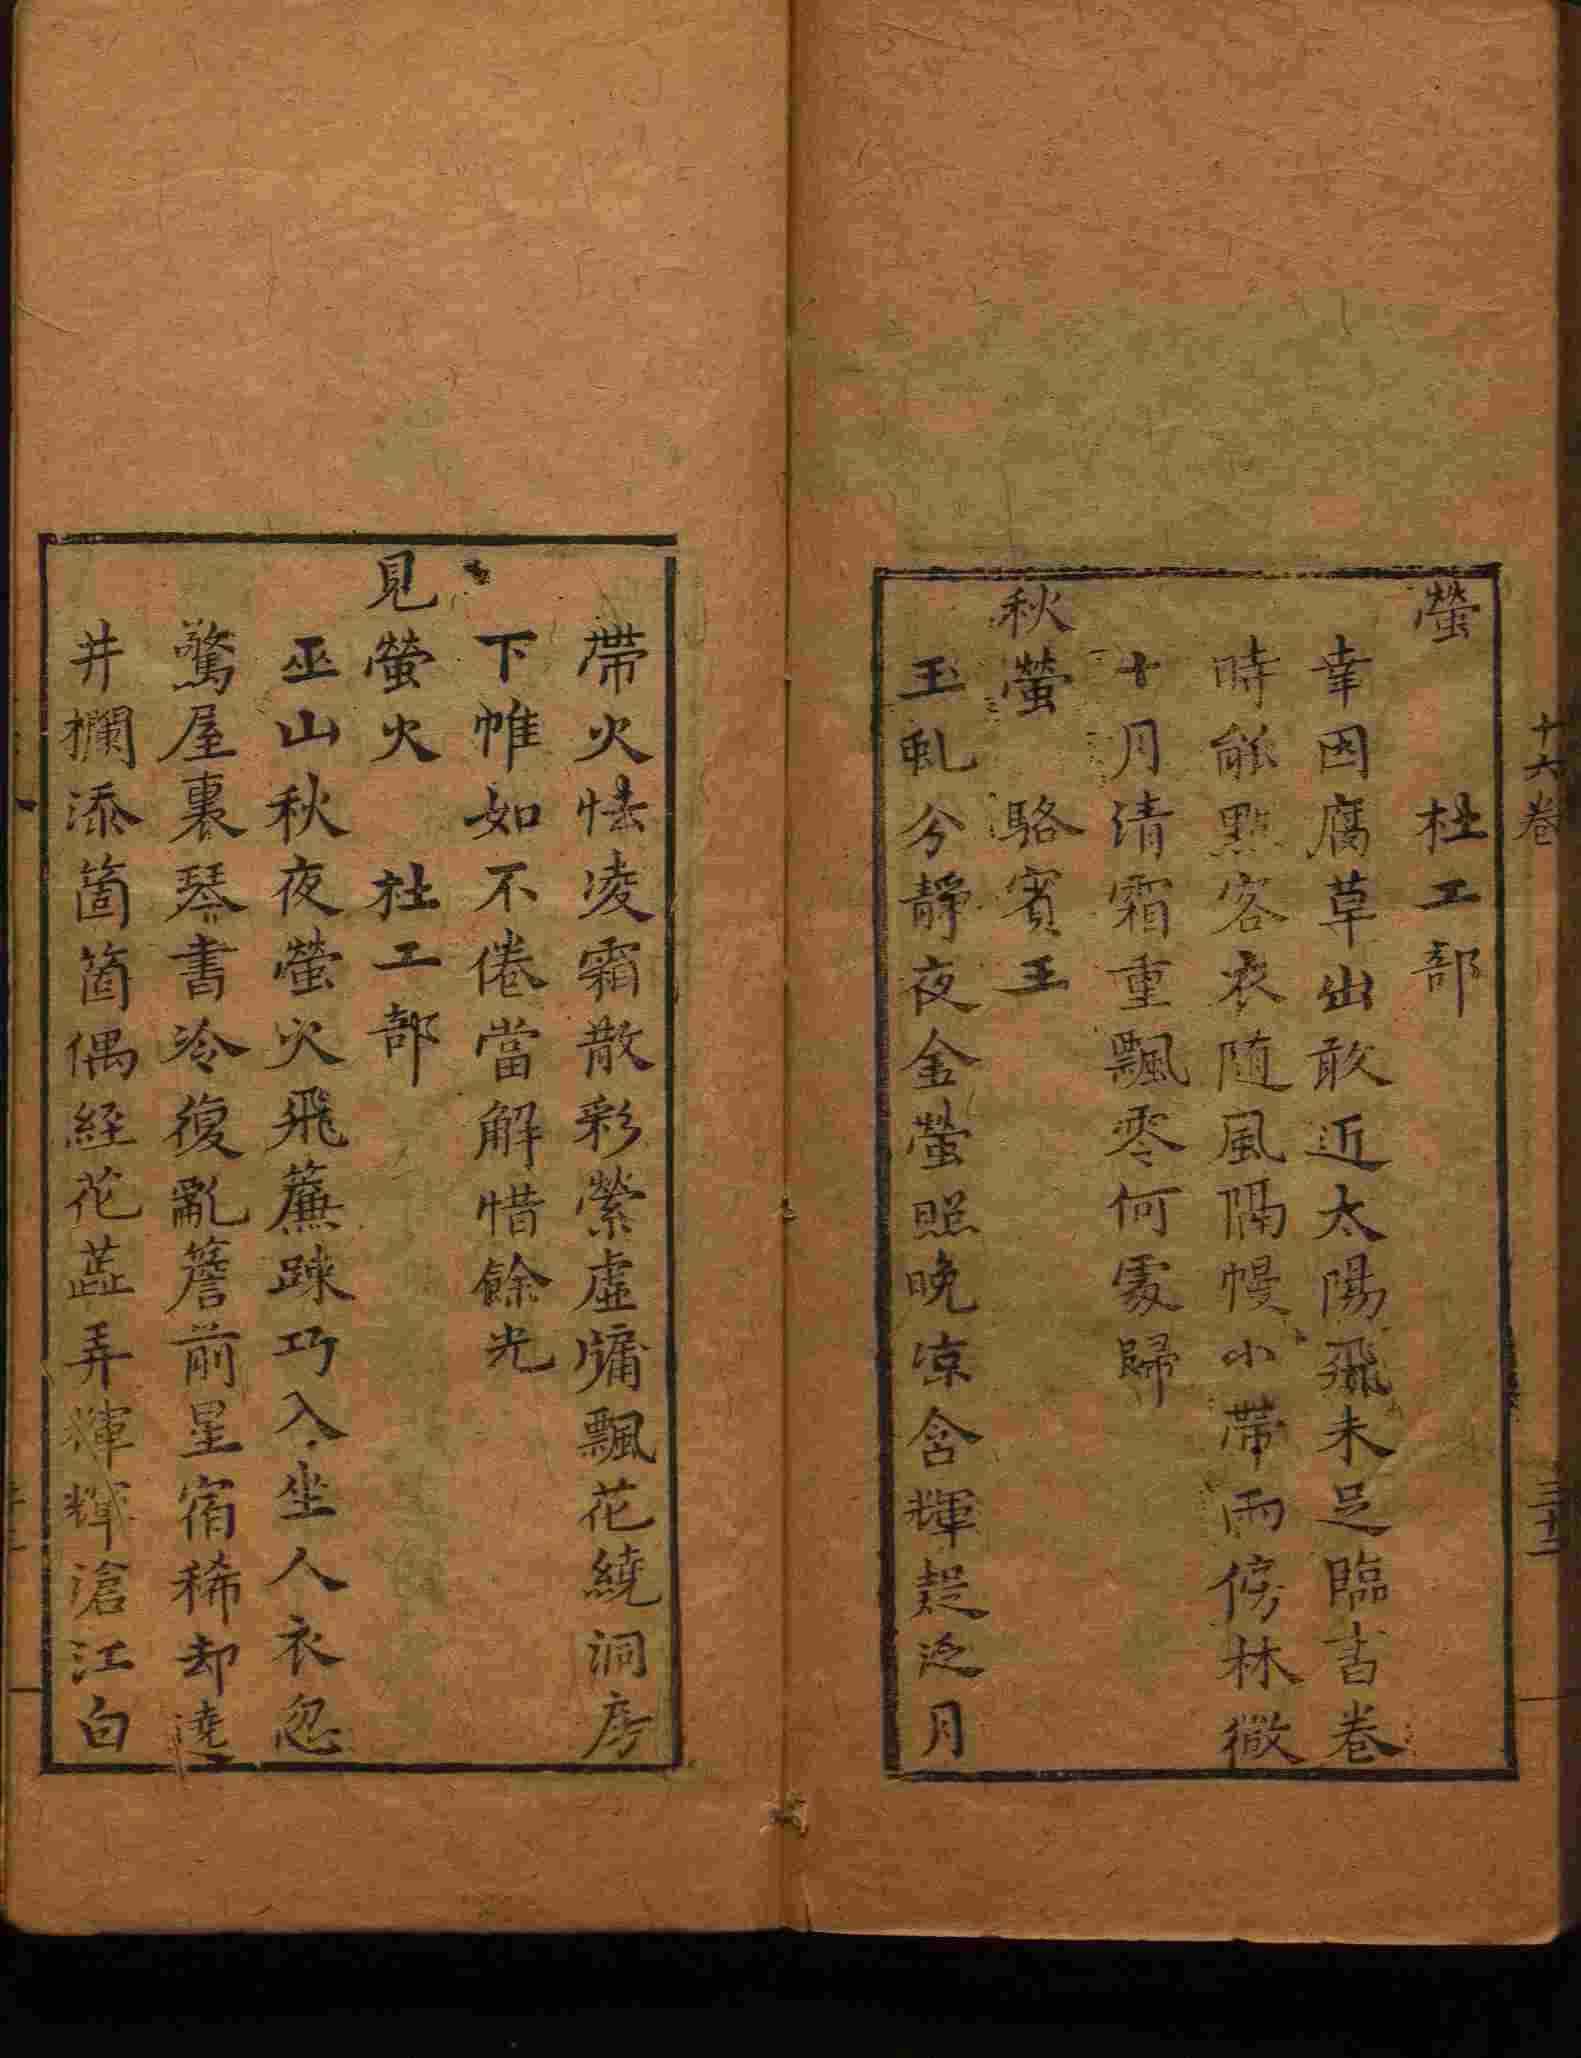 十六卷 三十二
螢 杜工部
幸因腐草出敢近太陽飛未足臨書卷
時能點客衣随風隔幔小帶雨傍林微
十月清霜重飄零何處歸
秋螢 駱賓王
玉虬分靜夜金螢照晚凉含輝疑泛月
帶火怯凌霜散彩縈虛牖飄花繞洞房
下帷如不倦當解惜餘光
見螢火 杜工部
巫山秋夜螢火飛簾踈巧入坐人衣忽
驚屋裏琴書冷復亂簷前星宿稀却遶
井欄添箇箇偶経花蕋弄輝輝滄江白